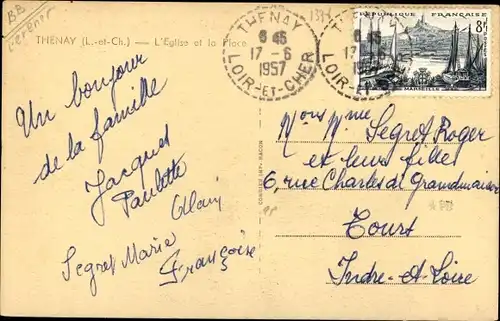 BB
1371
THENAY (L.-et-Ch.) — L'Eglise et la Place
THENAY
8 45
17 - 6
1957
LOIR-ET-CHER
RÉPUBLIQUE FRANÇAISE
8F
MARSEILLE
Un bonjour
de la famille
Jacques
Paulette
Alain
Segret Marie
Françoise
COMBIER IMP. MACON
Mons Mme Segret Roger
et leurs filles
6, rue Charles de Grandmaison
Tours
Indre-et-Loire